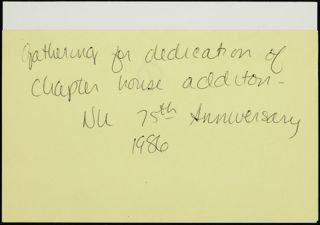 Gathering for dedication of
Chapter house additon -
NU 75th Anniversary
1986